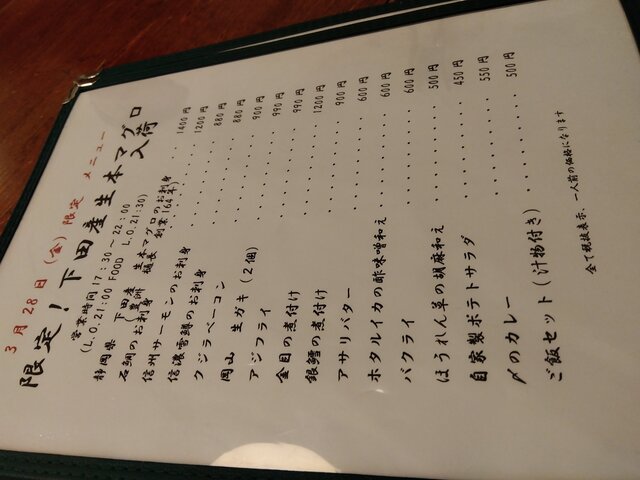 3月28日(金)限定 メニュー
限定!下田産生本マグロ入荷
営業時間 17:30~22:00
(L.O.21:00 FOOD L.O.21:30)
静岡県 下田産 生本マグロのお刺身
石鯛のお刺身 ・・・ 1400円
信州サーモンのお刺身 ・・・ 1200円
信濃雪鱒のお刺身 ・・・ 880円
クジラベーコン ・・・ 880円
岡山 生ガキ(2個) ・・・ 900円
アジフライ ・・・ 990円
金目の煮付け ・・・ 990円
銀鱈の煮付け ・・・ 1200円
アサリバター ・・・ 900円
ホタルイカの酢味噌和え ・・・ 600円
バクライ ・・・ 600円
ほうれん草の胡麻和え ・・・ 600円
自家製ポテトサラダ ・・・ 500円
〆のカレー ・・・ 450円
ご飯セット(汁物付き) ・・・ 550円
500円
全て税抜表示、一人前の価格になります